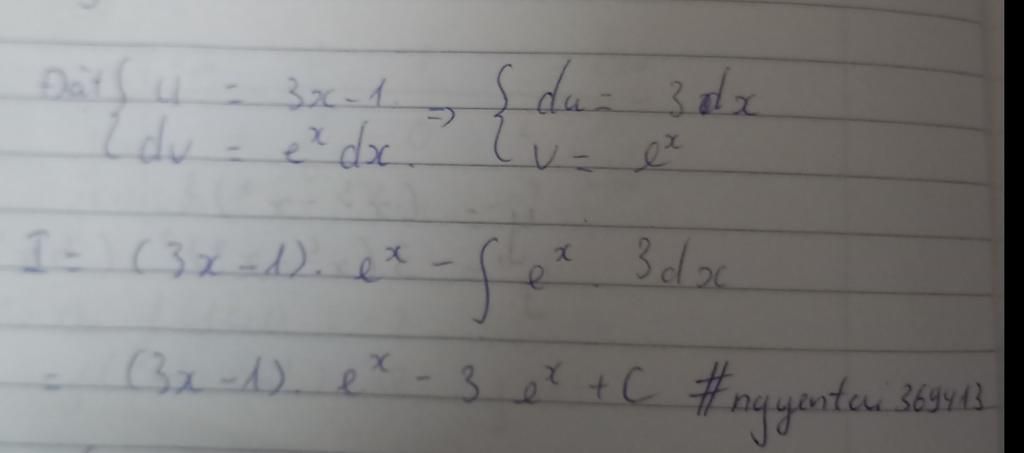 Đặt { u = 3x-1 => { du = 3dx
{ dv = e^x dx. { v = e^x
I = (3x-1). e^x - ∫ e^x. 3dx
= (3x-1). e^x - 3 e^x + C #ngyentai369413